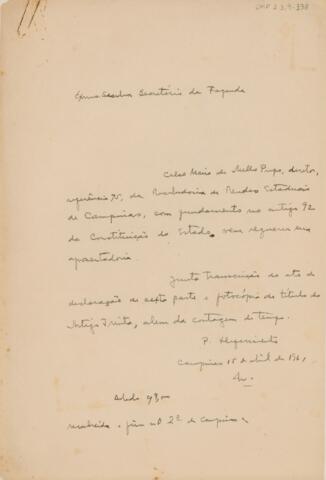 CMP 2.3.9-338
Exmo Senhor Secretário da Fazenda
Celso Maria de Mello Pupo, diretor,
referência 75, da Recebedoria de Rendas Estaduais
de Campinas, com fundamento no artigo 92
da Constituição do Estado, vem requerer sua
aposentadoria.
Junta transcrição do ato de
declaração de sexta parte e fotocópia do título do
artigo trinta, alem da contagem de tempo.
P. deferimento
Campinas 15 de abril de 196
firma 2º de Campinas